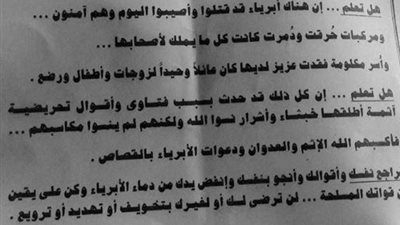 هل تعلم ... إن هناك أبرياء قد قتلوا وأصيبوا اليوم وهم آمنون ...
ومركبات حُرقت ودُمرت كانت كل ما يملك لأصحابها ...
وأُسر مكلومة فقدت عزيز لديها كان عائلاً وحيداً لزوجات وأطفال ورضع .
هل تعلم ... إن كل ذلك قد حدث بسبب فتاوى وأقوال تحريضية
آثمة أطلقها خبثاء وأشرار نسوا الله ولكنهم لم ينسوا مكاسبهم ...
فأكسبهم الله الإثم والعدوان ودعوات الأبرياء بالقصاص .
راجع نفسك وأقوالك وأنجو بنفسك وإنفض يدك من دماء الأبرياء وكن على يقين
قواتك المسلحة ... لن ترضى لك أو لغيرك بتخويف أو تهديد أو ترويع .